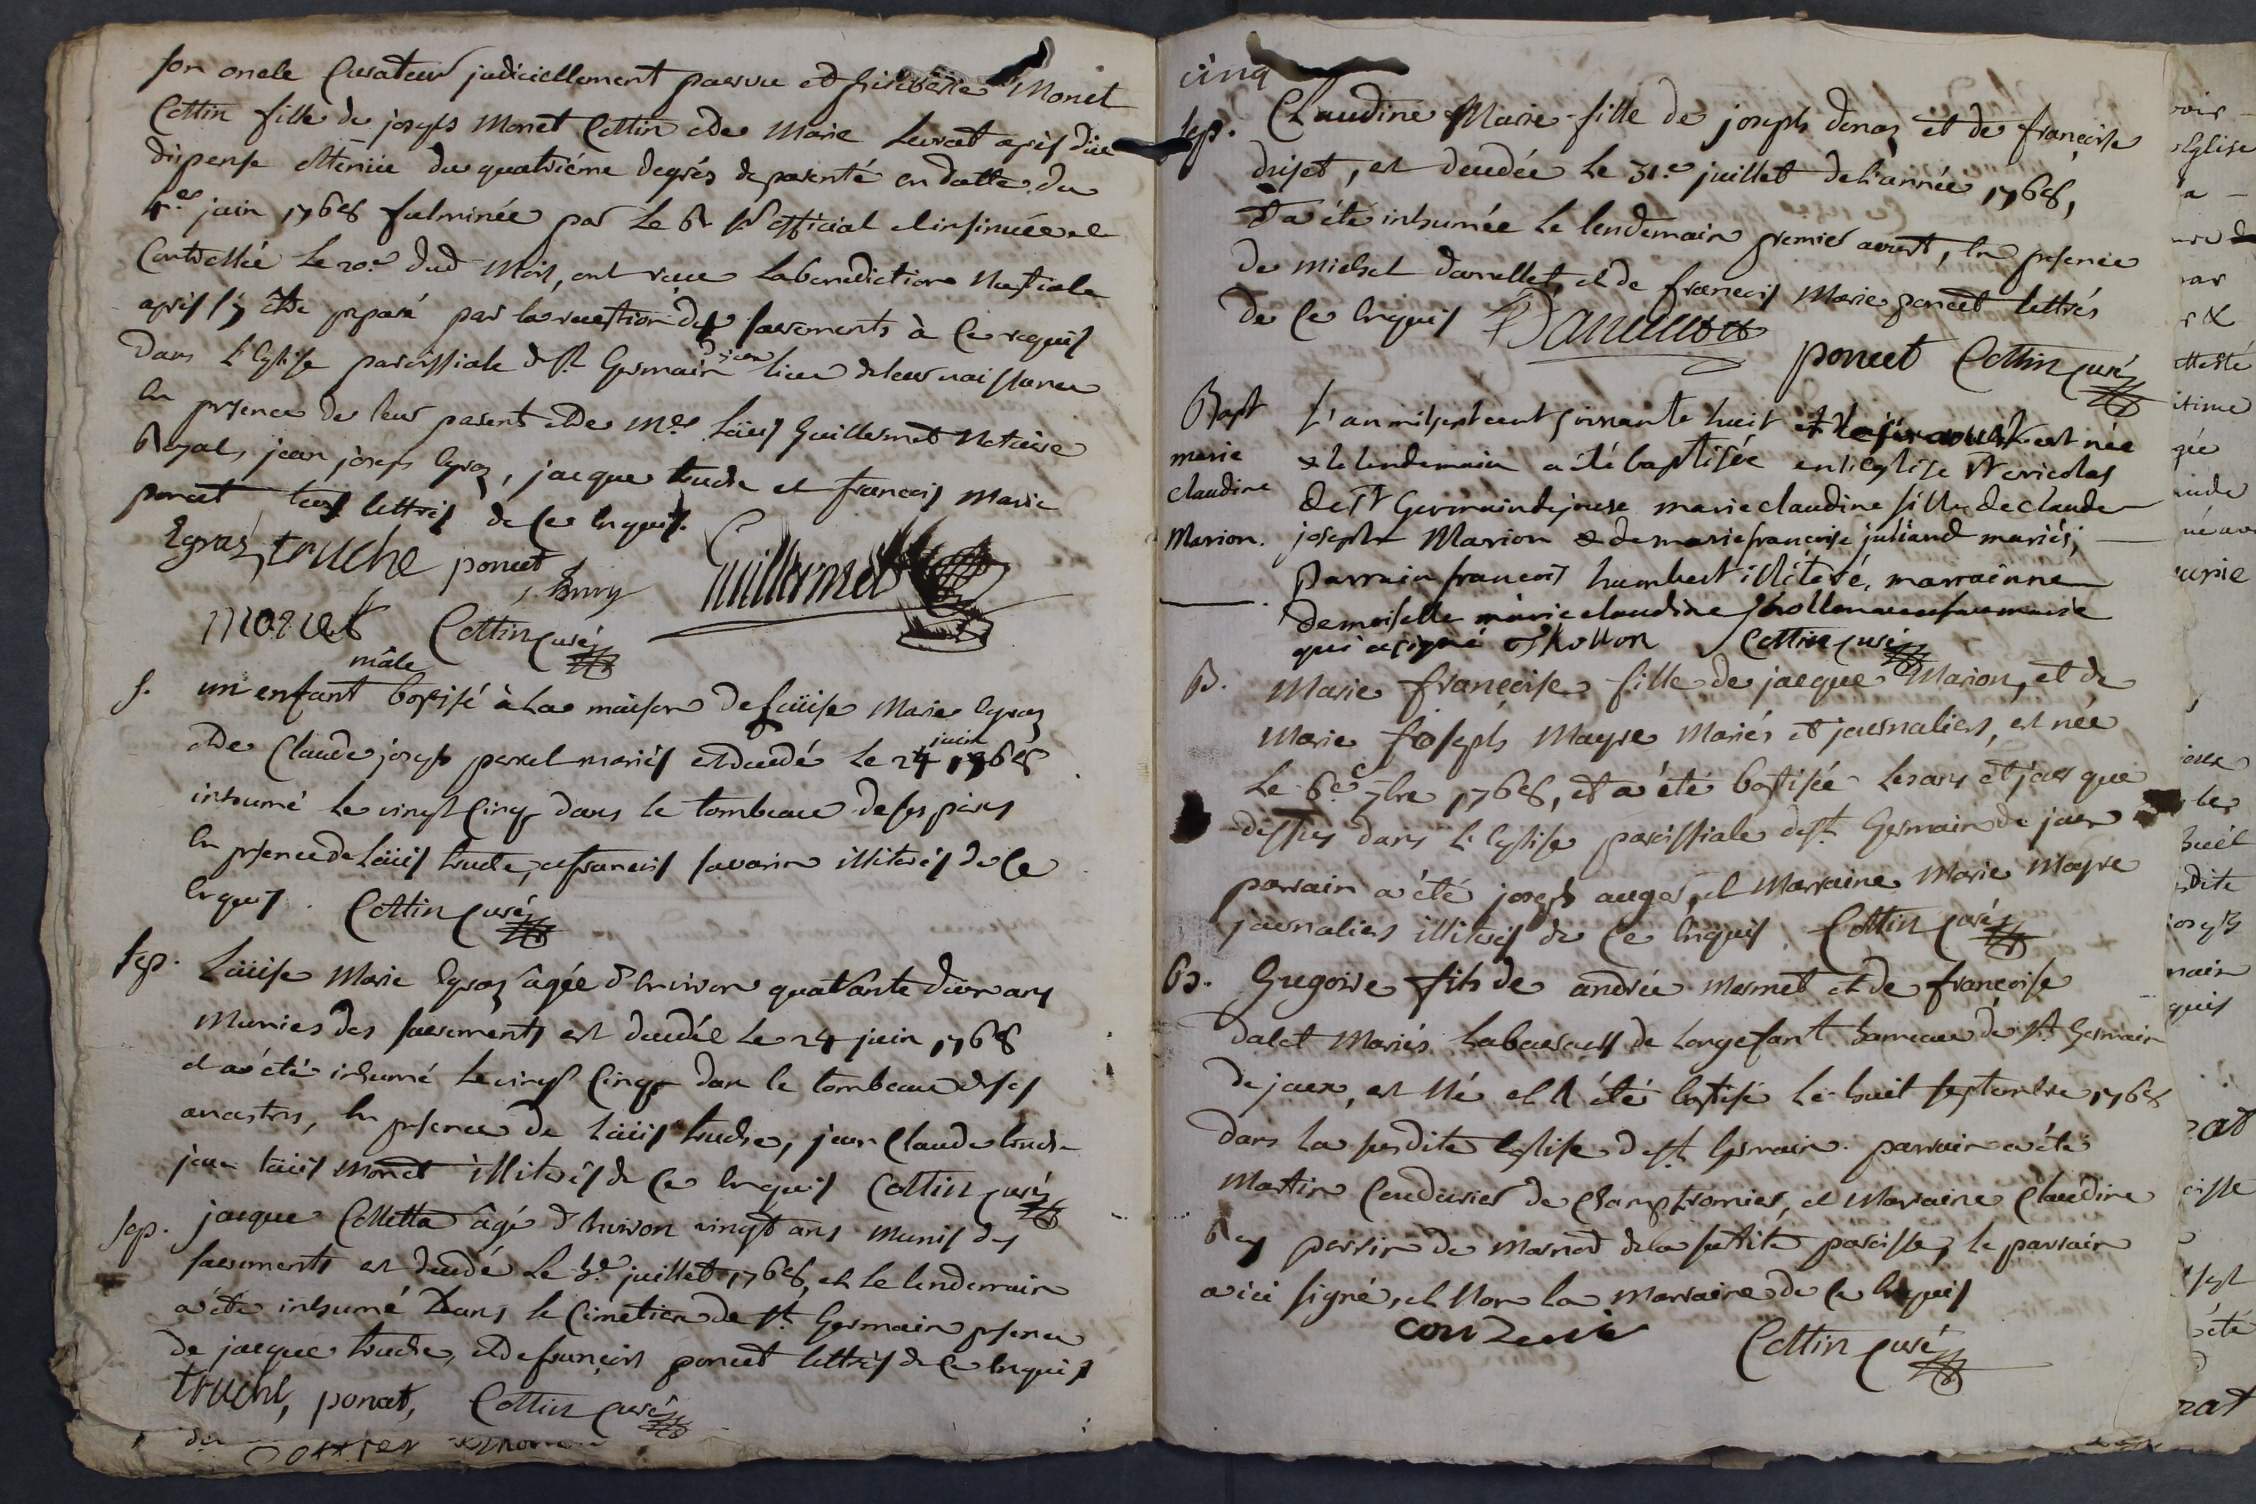 son oncle Curateur judiciellement parvu et Monet
Cottin fille de joseph Monet Cottin et de Marie après düe
dispense obtenüe du quatriéme degrés de parenté en datte du
juin 1768 fulminée par le Sr official et insinuée et
Controllée le 20e dud mois, ont reçue la benediction Nuptiale
après s'y être preparé par la reception des sacrements à ce requis
dans L'Eglise paroissiale de St Germain de joux lieu de leur naissance
En presence de leur parent et de Me Loüis Guillermet Notaire
Royal, jean joseph Egraz, jacque truche et francois Marie
poncet tous lettrés de ce Enquis.
Egraz truche poncet Guillermet
monet Cottin curé
mâle
S. un enfant baptisé à la maison de Loüise Marie Egraz
et de Claude joseph perret mariés est decedé le 24 juin 1768
inhumé le vingt Cinq dans le tombeau de ses peres
En presence de Loüis truche, et francois savarin illiterés de ce
Enquis. Cottin curé
Sep. Loüise Marie Egraz âgée d'Environ quarante deux ans
Munies des sacrements est decedée Le 24 juin 1768
et a été inhumé Le vingt Cinq dans le tombeau de ses
ancestres, En presence de Loüis truche, jean Claude truche
jean Loüis Monet illiterés de ce Enquis Cottin curé
Sep. jacque Colletta âgé d'Environ vingt ans Munis des
sacrements est decedé Le 3e juillet 1768, et le lendemain
a été inhumé dans le Cimetiere de St Germain presence
de jacque truche, et de françois poncet lettrés de ce Enquis
truche, poncet, Cottin curé
cinq
Sep. Claudine Marie fille de joseph donaz et de françoise
, est decedée Le 31e juillet de l'année 1768,
Et a été inhumée Le lendemain premier aoust, En presence
de Michel , et de francois Marie poncet lettrés
de ce Enquis
poncet Cottin curé
Bapt L'an mil sept cent soixante huit et aoust est née
marie & le lendemain a été baptisée en l'eglise St
claudine de St Germain de joux marie claudine fille de claude
Marion. joseph Marion & de marie francoise juliand mariés,
Parrain francois humbert illiteré, marrainne
demoiselle marie claudine
qui a signé Cottin curé
B. Marie françoise fille de jacque Marion, et de
Marie joseph Mayre Mariés et journaliers, est née
Le 6e 7bre 1768, et a été baptisée Les ans et jour que
dessus dans L'Eglise paroissiale de St Germain de joux
parrain a été joseph auger, et Marraine Marie Mayre
journaliers illiterés de ce Enquis. Cottin curé
B. Gregoire fils de andrée mermet et de françoise
dalet Mariés Laboureurs de Longefant hameau de St Germain
de joux, est né et a été baptisé Le huit septembre 1768
dans la susdite Eglise de St Germain. parrain a été
Martin Coudurier de Champfromier, et Marraine Claudine
perrin de marnod de la susdite paroisse, le parrain
a ici signé, et Non la Marraine de ce Enquis
Cottin curé